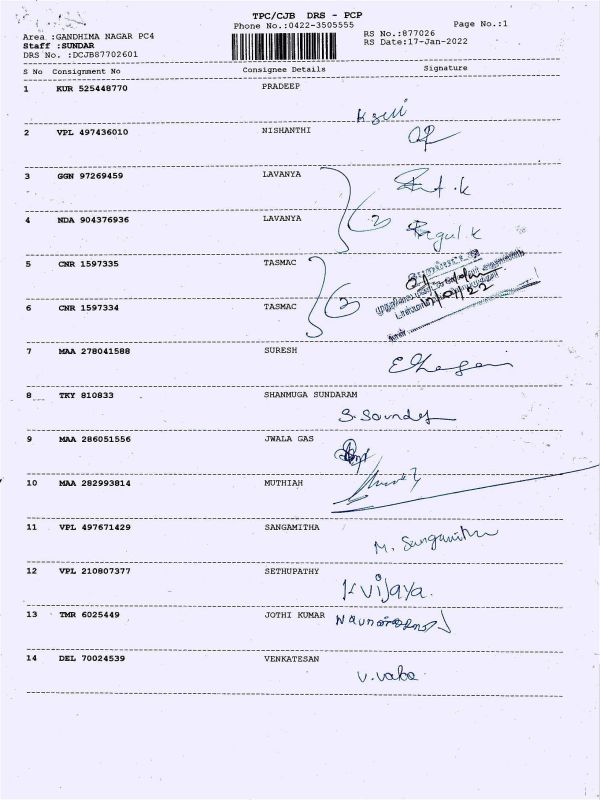 TPC/CJB DRS - PCP
Phone No.:0422-3505555 Page No.:1
Area :GANDHIMA NAGAR PC4 RS No.:877026
Staff :SUNDAR RS Date:17-Jan-2022
DRS No. :DCJB87702601
S No Consignment No Consignee Details Signature
1 KUR 525448770 PRADEEP
2 VPL 497436010 NISHANTHI
3 GGN 97269459 LAVANYA
4 NDA 904376936 LAVANYA
2
Ragul.k
5 CNR 1597335 TASMAC
6 CNR 1597334 TASMAC
2
7 MAA 278041588 SURESH
8 TKY 810833 SHANMUGA SUNDARAM
9 MAA 286051556 JWALA GAS
10 MAA 282993814 MUTHIAH
11 VPL 497671429 SANGAMITHA
M. Sangamitha
12 VPL 210807377 SETHUPATHY
K Vijaya.
13 TMR 6025449 JOTHI KUMAR
14 DEL 70024539 VENKATESAN